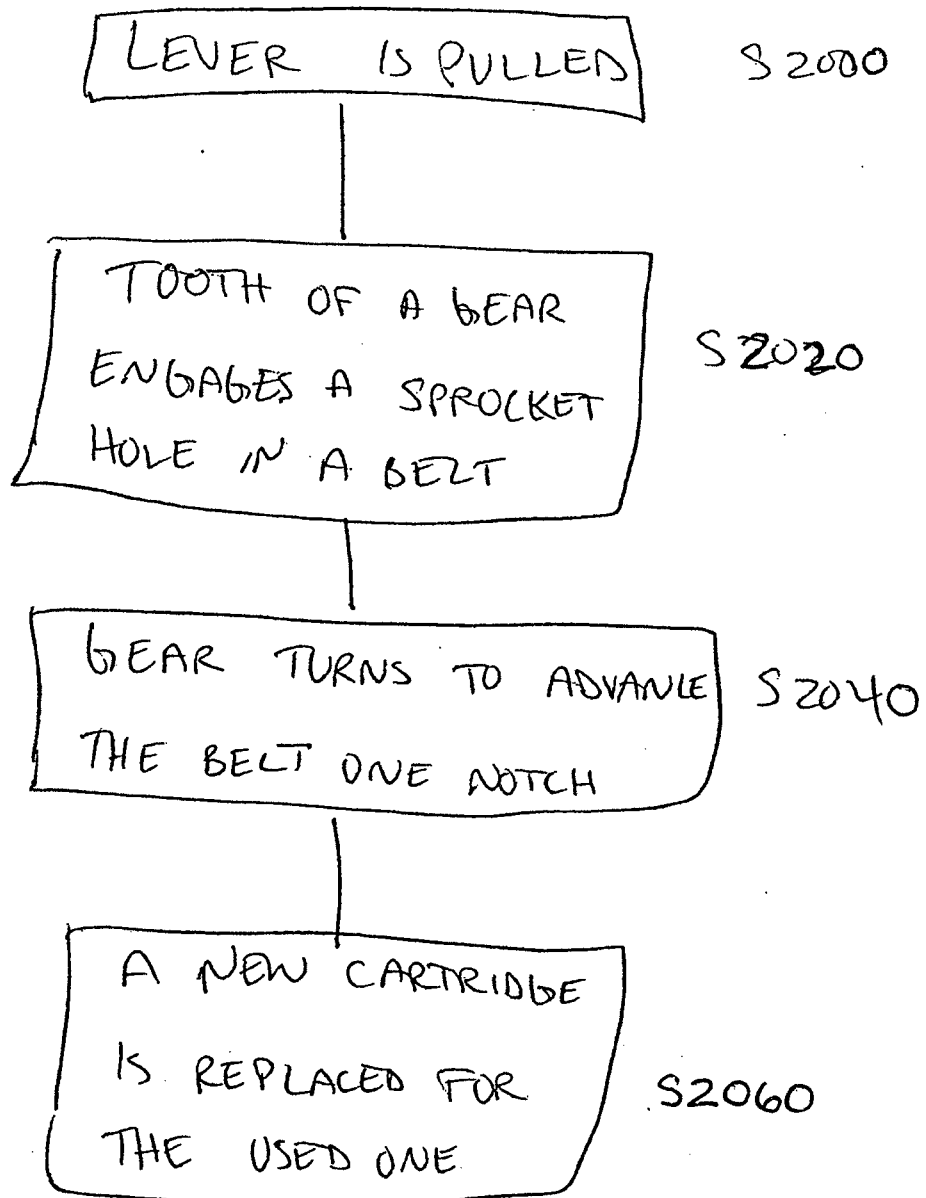 LEVER IS PULLED S2000
TOOTH OF A GEAR
ENGAGES A SPROCKET
HOLE IN A BELT
S2020
GEAR TURNS TO ADVANCE
THE BELT ONE NOTCH
S2040
A NEW CARTRIDGE
IS REPLACED FOR
THE USED ONE
S2060